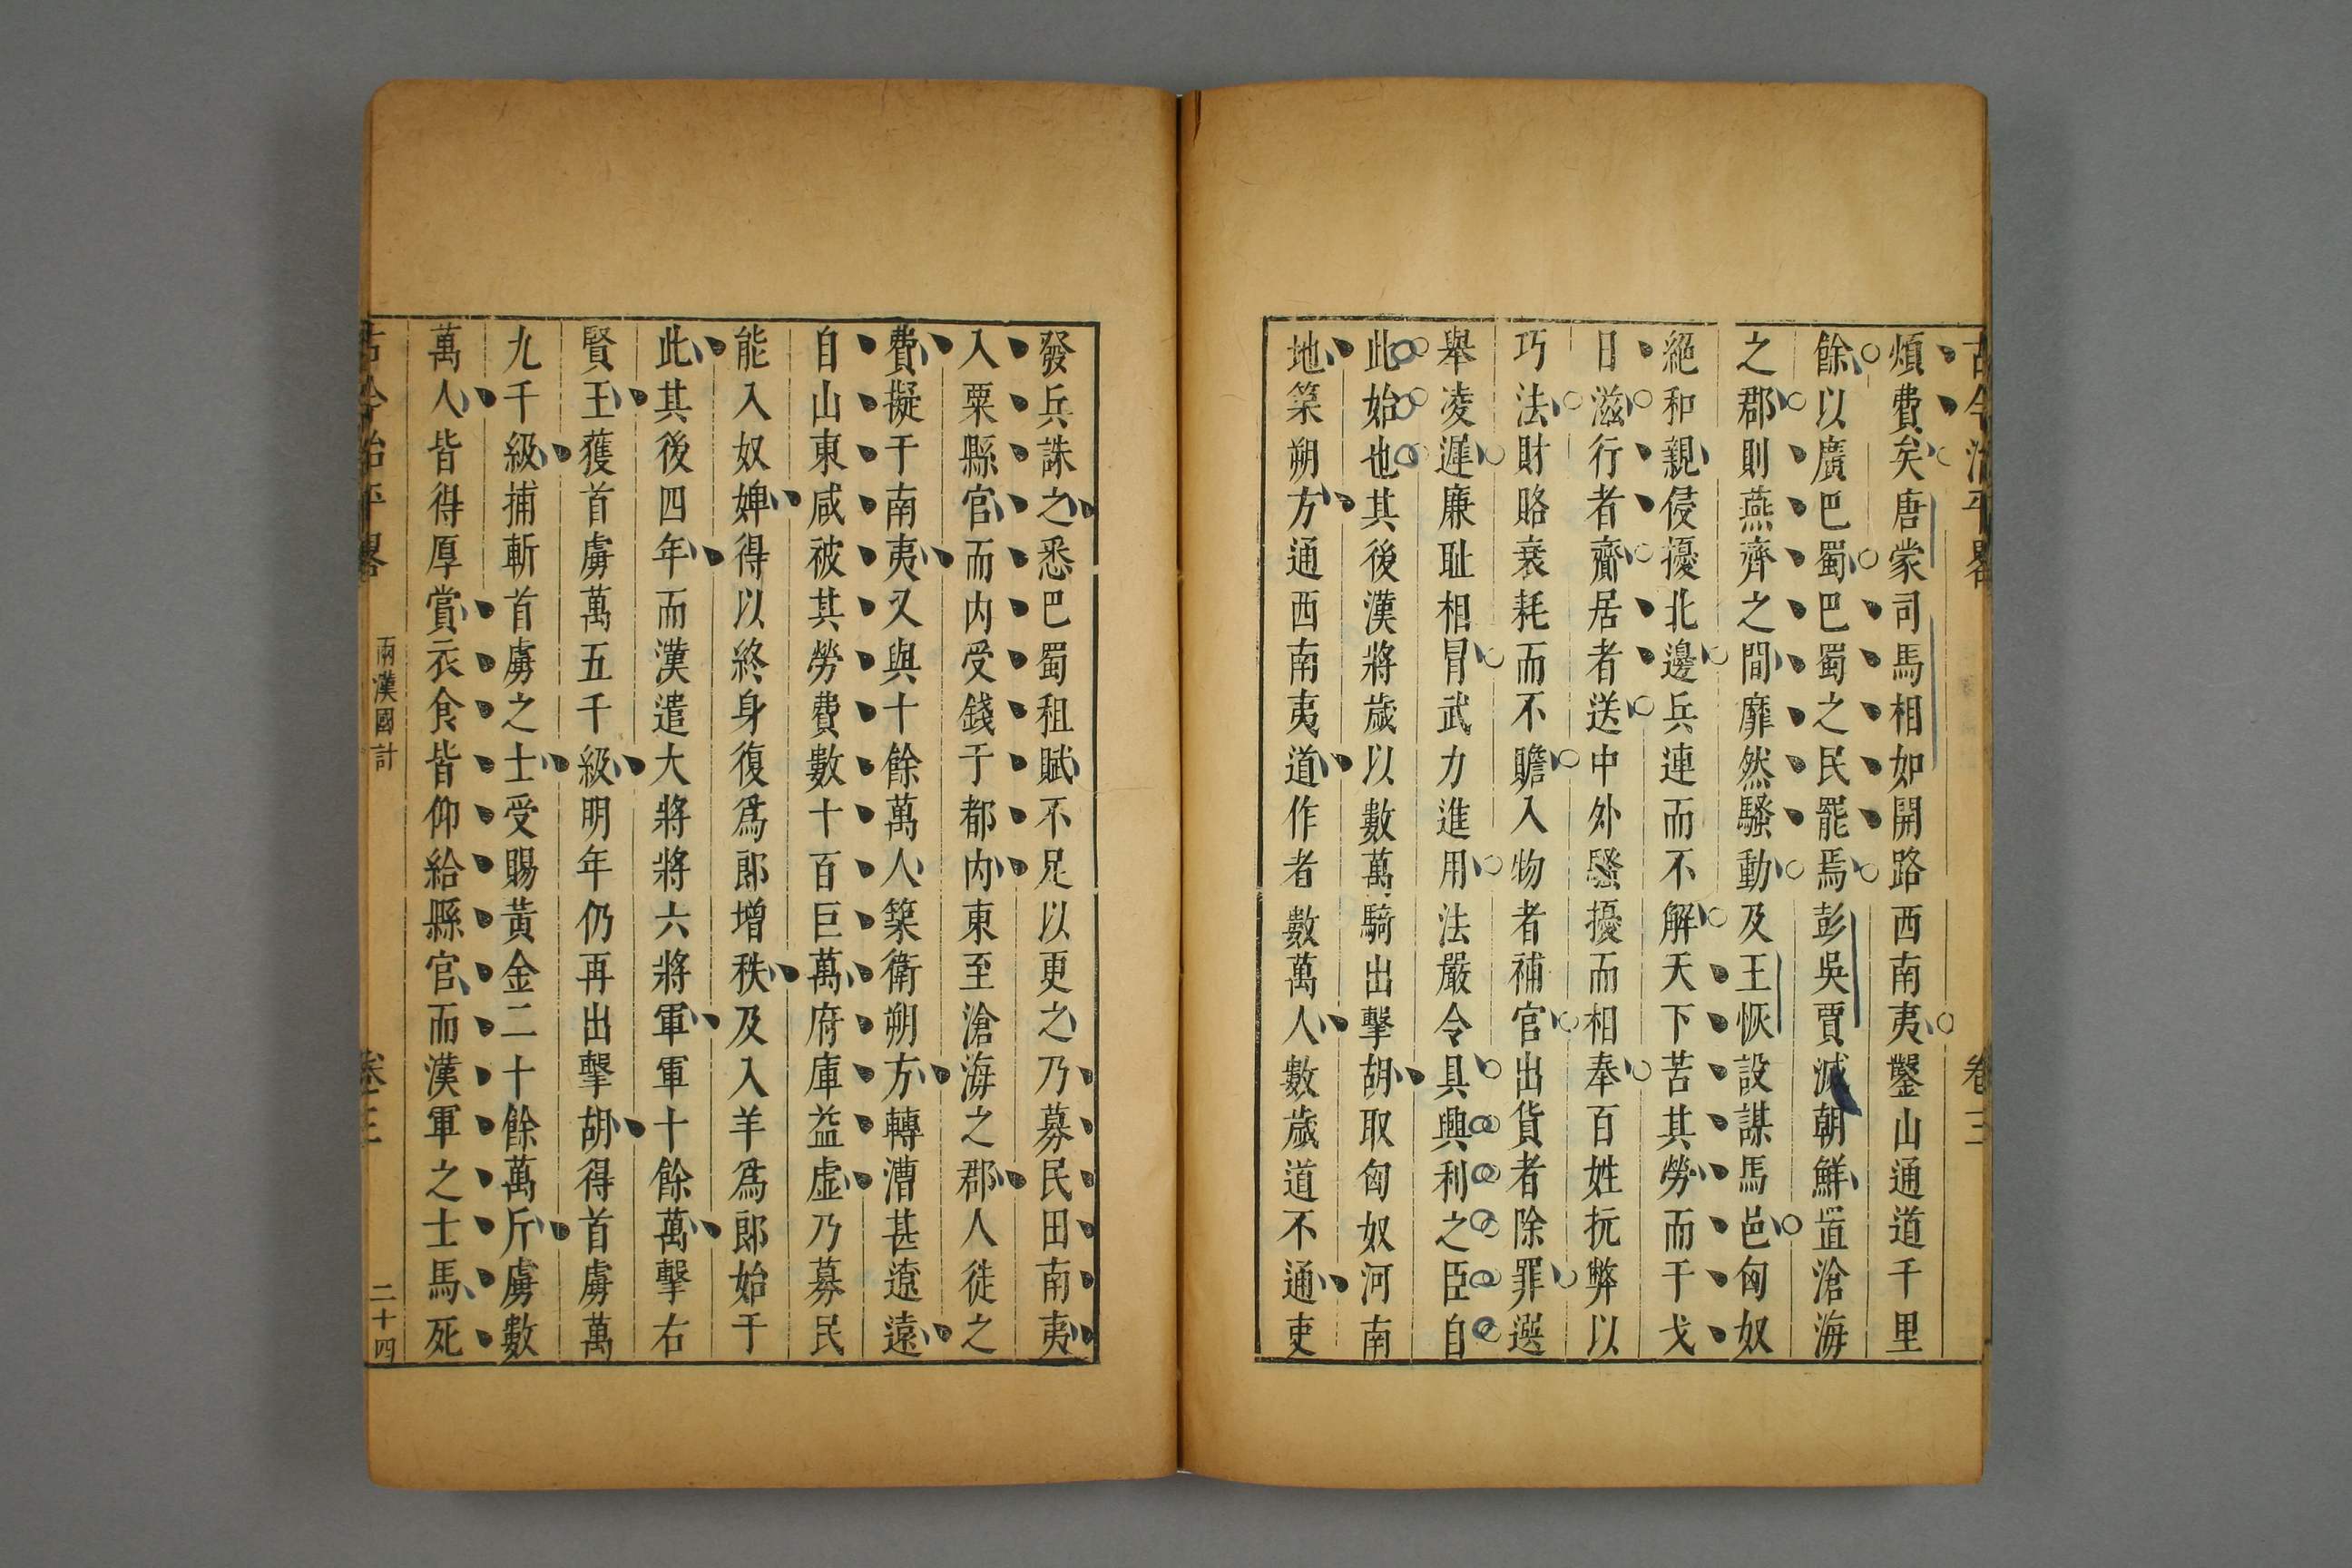 古今治平畧 卷三
煩費矣唐蒙司馬相如開路西南夷鑿山通道千里
餘以廣巴蜀巴蜀之民罷焉彭吳賈滅朝鮮置滄海
之郡則燕齊之間靡然騷動及王恢設謀馬邑匈奴
絕和親侵擾北邊兵連而不解天下苦其勞而干戈
日滋行者齎居者送中外騷擾而相奉百姓抏弊以
巧法財賂衰耗而不贍入物者補官出貨者除罪選
舉凌遲廉耻相冒武力進用法嚴令具興利之臣自
此始也其後漢將歲以數萬騎出擊胡取匈奴河南
地築朔方通西南夷道作者數萬人數歲道不通吏
發兵誅之悉巴蜀租賦不足以更之乃募民田南夷
入粟縣官而内受錢于都内東至滄海之郡人徒之
費擬于南夷又與十餘萬人築衛朔方轉漕甚遼遠
自山東咸被其勞費數十百巨萬府庫益虛乃募民
能入奴婢得以終身復爲郎增秩及入羊爲郎始于
此其後四年而漢遣大將將六將軍軍十餘萬擊右
賢王獲首虜萬五千級明年仍再出擊胡得首虜萬
九千級捕斬首虜之士受賜黃金二十餘萬斤虜數
萬人皆得厚賞衣食皆仰給縣官而漢軍之士馬死
古今治平畧 兩漢國計 卷三 二十四